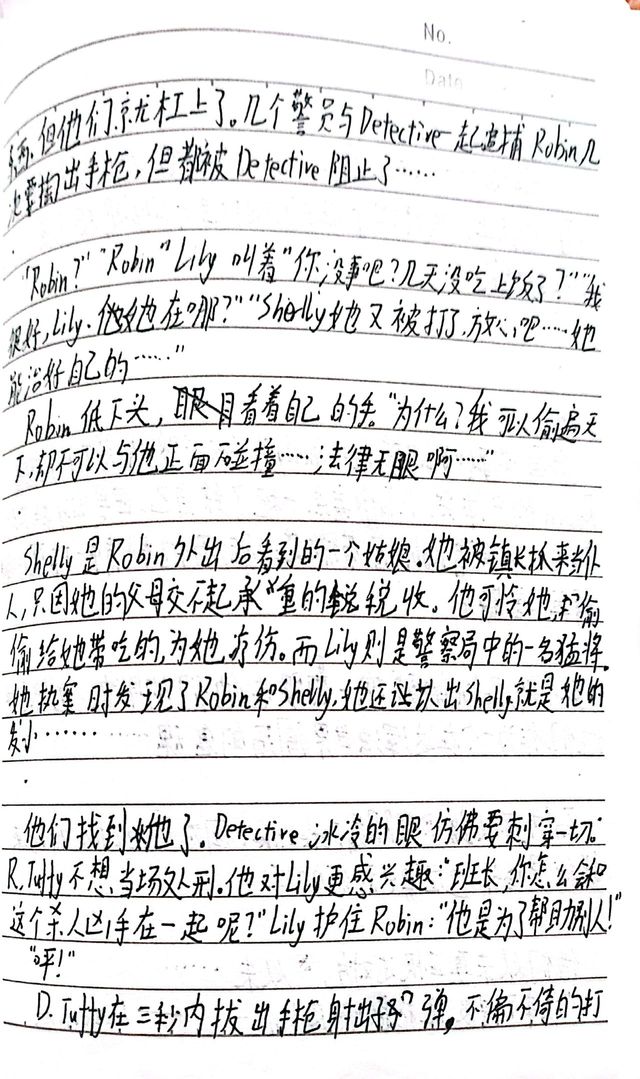 No.
Date
但他们就杠上了。几个警员与Detective一起追捕Robin几
次要掏出手枪,但都被Detective阻止了……
"Robin?""Robin"Lily叫着"你没事吧?几天没吃上饭了?""我
很好,Lily.她在哪?""Shelly她又被打了.放心吧……她
能治好自己的……"
Robin低下头,目看着自己的手。"为什么?我可以偷遍天
下,却不可以与他正面碰撞……法律无眼啊……"
Shelly是Robin外出后看到的一个姑娘。她被镇长抓来当仆
人,只因她的父母交不起承重的税收。他可怜她,偷
偷给她带吃的,为她疗伤。而Lily则是警察局中的一名猛将。
她执案时发现了Robin和Shelly,她还认出Shelly就是她的
发小………
他们找到他了。Detective冰冷的眼仿佛要刺穿一切。
R.Tuffy不想当场处人刑。他对Lily更感兴趣:"班长,你怎么会和
这个杀人凶手在一起呢?"Lily护住Robin:"他是为了帮助别人!"
"呯!"
D.Tuffy在三秒内拔出手枪射出子弹,不偏不倚的打